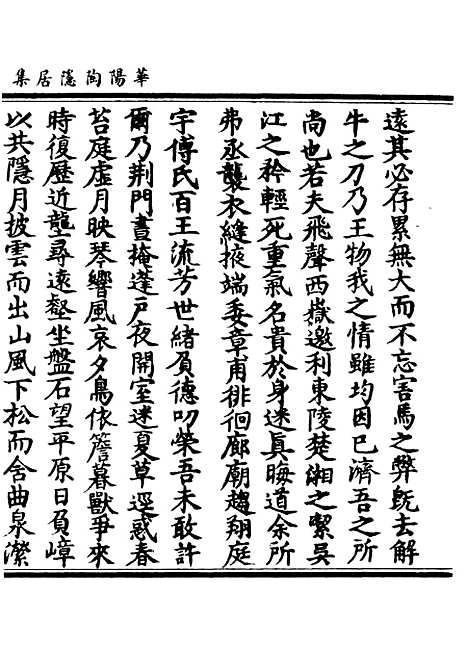 華陽陶隱居集
遠其必存累無大而不忘害馬之弊旣去解
牛之刀乃王物我之情雖均因已濟吾之所
尚也若夫飛聲西嶽邀利東陵楚湘之絜吳
江之矜輕死重氣名貴於身迷眞晦道余所
弗丞襲衣縫掖端委章甫徘徊廊廟趨翔庭
宇傅氏百王流芳世緖負德叨榮吾未敢許
爾乃荆門晝掩蓬戶夜開室迷夏草逕惑春
苔庭虛月映琴響風哀夕鳥依簷暮獸爭來
時復歷近壟尋遠壑坐盤石望平原日負嶂
以共隱月披雲而出山風下松而含曲泉潀